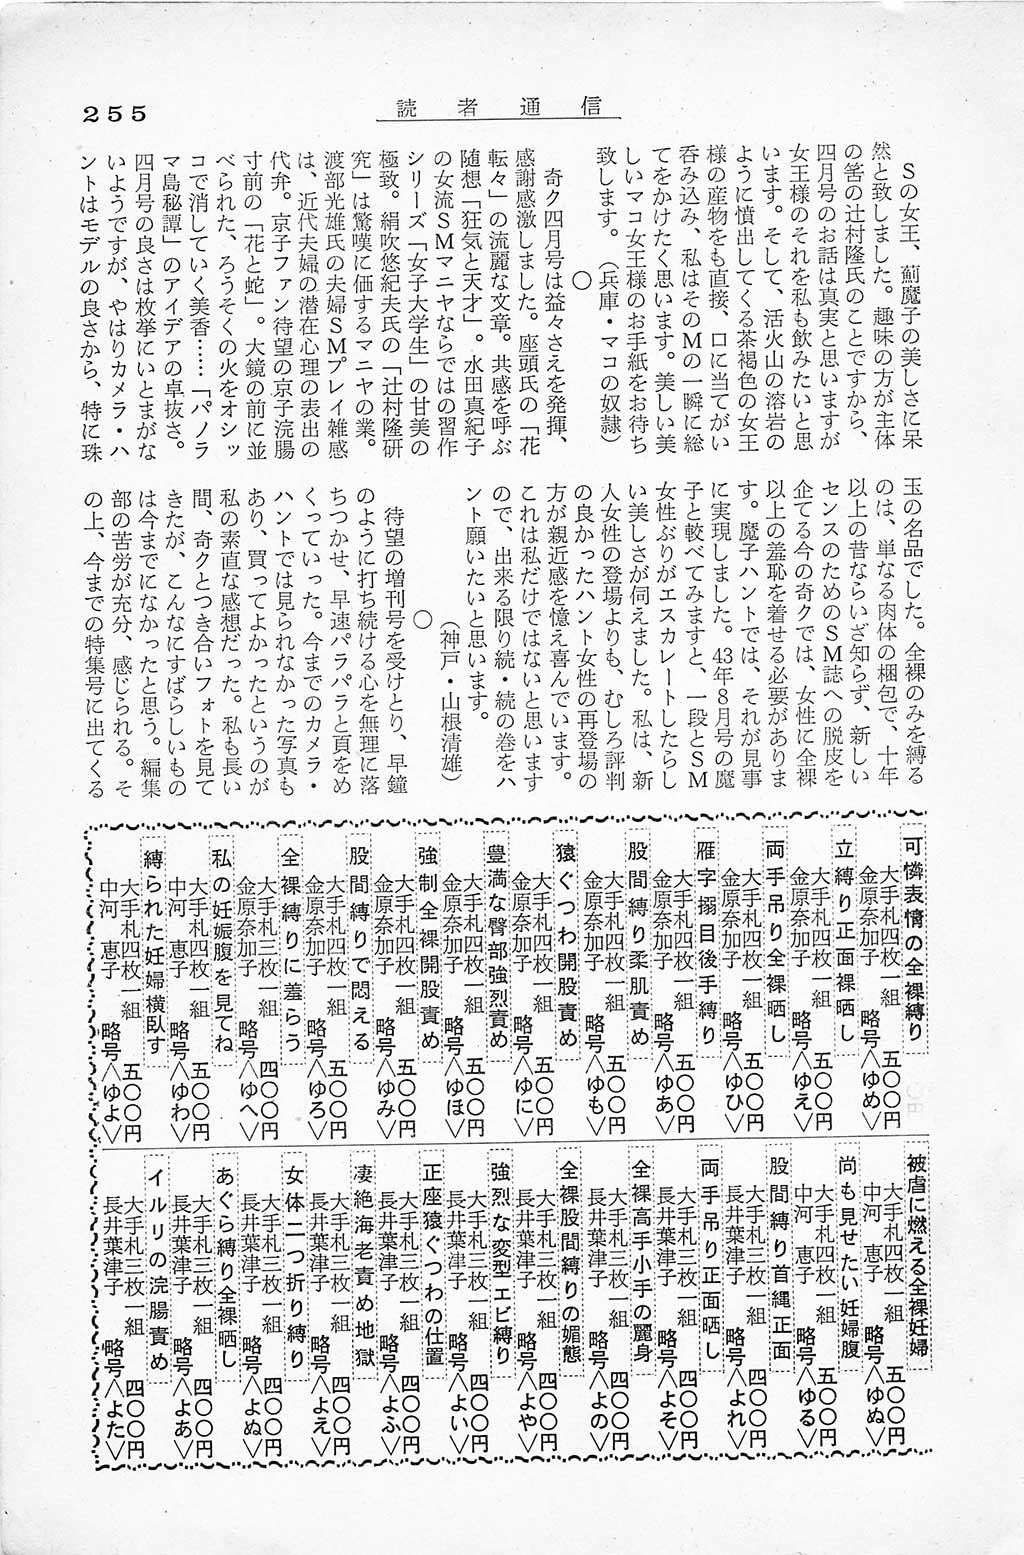 255
読者通信
Sの女王、薊魔子の美しさに呆
然と致しました。趣味の方が主体
の筈の辻村隆氏のことですから、
四月号のお話は真実と思いますが
女王様のそれを私も飲みたいと思
います。そして、活火山の溶岩の
ように憤出してくる茶褐色の女王
様の産物をも直接、口に当てがい
呑み込み、私はそのMの一瞬に総
てをかけたく思います。美しい美
しいマコ女王様のお手紙をお待ち
致します。（兵庫・マコの奴隷）
○
奇ク四月号は益々さえを発揮、
感謝感激しました。座頭氏の「花
転々」の流麗な文章。共感を呼ぶ
随想「狂気と天才」。水田真紀子
の女流SMマニヤならではの習作
シリーズ「女子大学生」の甘美の
極致。絹吹悠紀夫氏の「辻村隆研
究」は驚嘆に価するマニヤの業。
渡部光雄氏の夫婦SMプレイ雑感
は、近代夫婦の潜在心理の表出の
代弁。京子ファン待望の京子浣腸
寸前の「花と蛇」。大鏡の前に並
べられた、ろうそくの火をオシッ
コで消していく美香……「パノラ
マ島秘譚」のアイデアの卓抜さ。
四月号の良さは枚挙にいとまがな
いようですが、やはりカメラ・ハ
ントはモデルの良さから、特に珠
玉の名品でした。全裸のみを縛る
のは、単なる肉体の梱包で、十年
以上の昔ならいざ知らず、新しい
センスのためのSM誌への脱皮を
企てる今の奇クでは、女性に全裸
以上の羞恥を着せる必要がありま
す。魔子ハントでは、それが見事
に実現しました。43年8月号の魔
子と較べてみますと、一段とSM
女性ぶりがエスカレートしたらし
い美しさが伺えました。私は、新
人女性の登場よりも、むしろ評判
の良かったハント女性の再登場の
方が親近感を憶え喜んでいます。
これは私だけではないと思います
ので、出来る限り続・続の巻をハ
ント願いたいと思います。
（神戸・山根清雄）
○
待望の増刊号を受けとり、早鐘
のように打ち続ける心を無理に落
ちつかせ、早速パラパラと頁をめ
くっていった。今までのカメラ・
ハントでは見られなかった写真も
あり、買ってよかったというのが
私の素直な感想だった。私も長い
間、奇クとつき合いフォトを見て
きたが、こんなにすばらしいもの
は今までになかったと思う。編集
部の苦労が充分、感じられる。そ
の上、今までの特集号に出てくる
可憐表情の全裸縛り
大手札四枚一組 五〇〇円
金原奈加子 略号＜ゆめ＞
立縛り正面裸晒し
大手札四枚一組 五〇〇円
金原奈加子 略号＜ゆえ＞
両手吊り全裸晒し
大手札四枚一組 五〇〇円
金原奈加子 略号＜ゆひ＞
雁字搦目後手縛り
大手札四枚一組 五〇〇円
金原奈加子 略号＜ゆあ＞
股間縛り柔肌責め
大手札四枚一組 五〇〇円
金原奈加子 略号＜ゆも＞
猿ぐつわ開股責め
大手札四枚一組 五〇〇円
金原奈加子 略号＜ゆに＞
豊満な臀部強烈責め
大手札四枚一組 五〇〇円
金原奈加子 略号＜ゆほ＞
強制全裸開股責め
大手札四枚一組 五〇〇円
金原奈加子 略号＜ゆみ＞
股間縛りで悶える
大手札四枚一組 五〇〇円
金原奈加子 略号＜ゆろ＞
全裸縛りに羞らう
大手札三枚一組 四〇〇円
金原奈加子 略号＜ゆへ＞
私の妊娠腹を見てね
大手札四枚一組 五〇〇円
中河 恵子 略号＜ゆわ＞
縛られた妊婦横臥す
大手札四枚一組 五〇〇円
中河 恵子 略号＜ゆよ＞
被虐に燃える全裸妊婦
大手札四枚一組 五〇〇円
中河 恵子 略号＜ゆぬ＞
尚も見せたい妊婦腹
大手札四枚一組 五〇〇円
中河 恵子 略号＜ゆる＞
股間縛り首縄正面
大手札三枚一組 四〇〇円
長井葉津子 略号＜よれ＞
両手吊り正面晒し
大手札三枚一組 四〇〇円
長井葉津子 略号＜よそ＞
全裸高手小手の麗身
大手札三枚一組 四〇〇円
長井葉津子 略号＜よの＞
全裸股間縛りの媚態
大手札三枚一組 四〇〇円
長井葉津子 略号＜よや＞
強烈な変型エビ縛り
大手札三枚一組 四〇〇円
長井葉津子 略号＜よい＞
正座猿ぐつわの仕置
大手札三枚一組 四〇〇円
長井葉津子 略号＜よふ＞
凄絶海老責め地獄
大手札三枚一組 四〇〇円
長井葉津子 略号＜よえ＞
女体二つ折り縛り
大手札三枚一組 四〇〇円
長井葉津子 略号＜よぬ＞
あぐら縛り全裸晒し
大手札三枚一組 四〇〇円
長井葉津子 略号＜よあ＞
イルリの浣腸責め
大手札三枚一組 四〇〇円
長井葉津子 略号＜よた＞